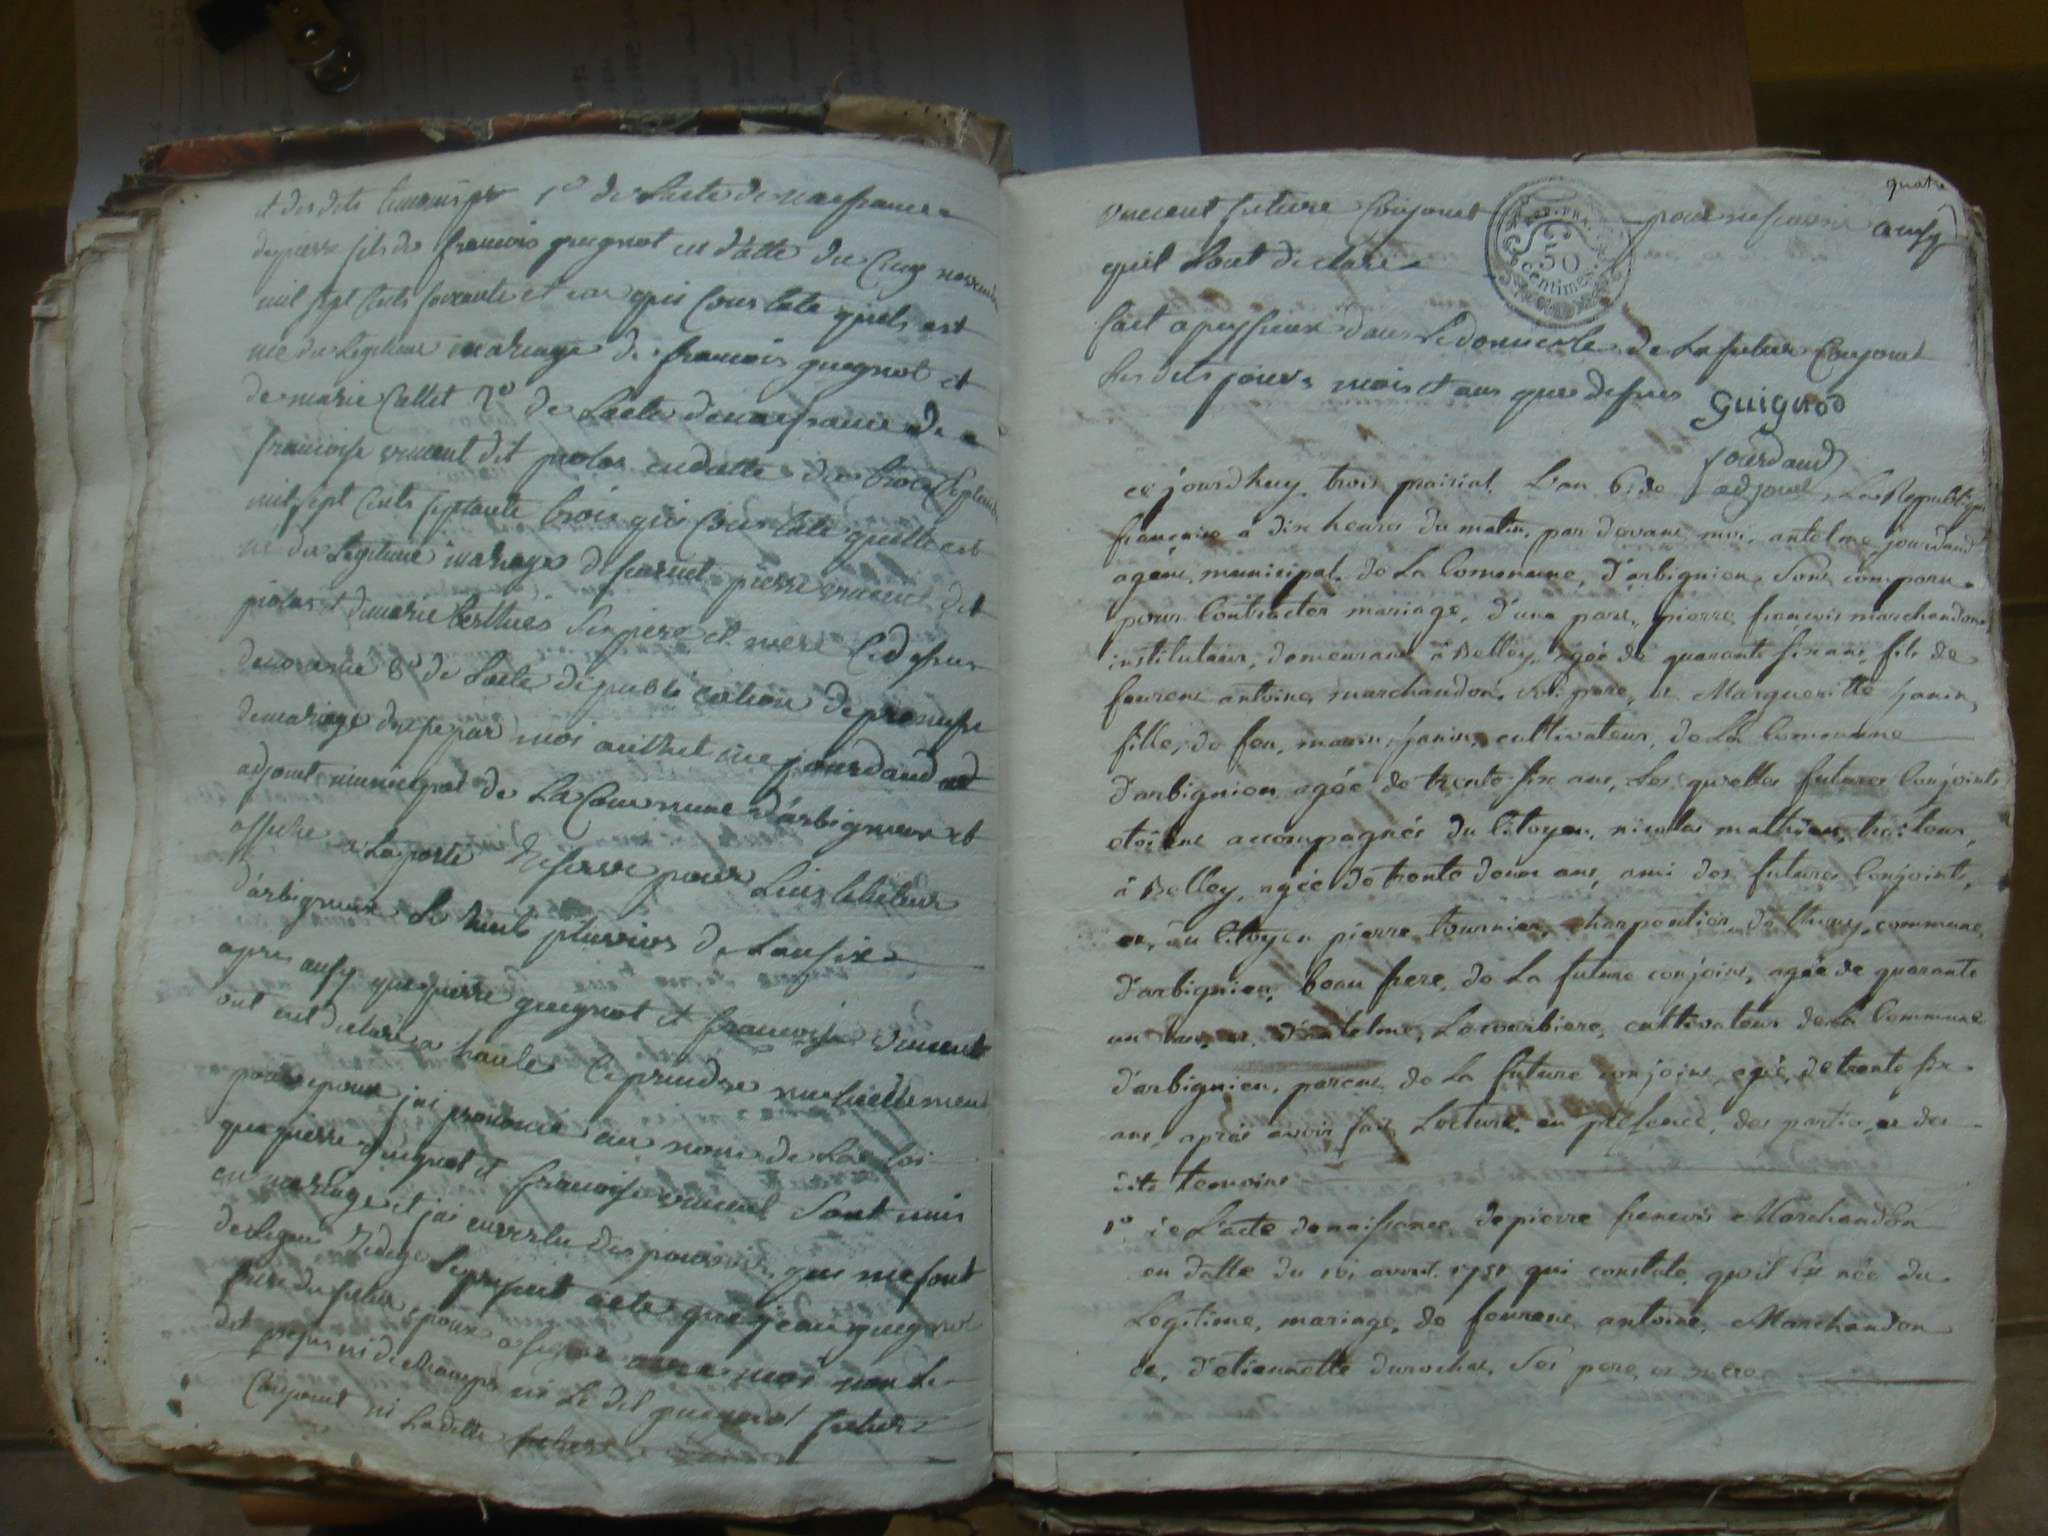 et des dits temoins 1° de Lacte de naissance
de pierre fils de francois guignot en datte du cinq novembre
mil sept cents soixante et un qui constate quils est
né du legitime mariage de francois guignot et
de marie Callet 2° de Lacte de naissance de
francoise vincent dit piolas en datte du trois septembre
mil sept cents septante trois qui constate quelle est
né du legitime mariage de pierre vincent dit
piolas et de marie berthier son pere et mere cy dessus
denommé 3° de Lacte de publication de promesse
de mariage dressé par moi anthelme jourdand
adjoint municipal de La Commune d'arbignieux et
affiche a La porte
d'arbignieux Le huit pluviose de Lan six
apres ausy que pierre guignot et francoise vincent
ont eut declaré a haute ce prendre mutuellement
pour epoux jai prononcé au nom de La Loi
que pierre guignot et francoise vincent sont unis
en mariage et jai en vertu des pouvoirs qui me sont
delegués redigé le present acte que jean guignot
frere du futur epoux a signé avec moi non Le
dit ni Le dit guignot futur
Conjoint ni La ditte
quatre
vincent future Conjoint pour ne savoir ausy
quil Lont declaré
50 centimes
fait a peyzieux dans Le domicile de La future Conjoint
Les dits jours mois et ans que dessus Guignod
jourdand
adjoint
cejourdhuy trois prairial L'an 6e de La Republique
française à dix heures du matin, par devant moi, antelme jourdand
agent municipal de La Commune, d'arbignieu sont comparu
pour Contracter mariage, d'une part, pierre françois marchandon
instituteur, demeurant à Belley, agée de quarante six ans, fils de
feurent antoine marchandon, son pere, et Margueritte janin,
fille, de feu, marin, janin, cultivateur, de La Commune
d'arbignieu agée de trente six ans, Les quelles futures Conjoints
etoient accompagnés du Citoyen, nicolas mathieu, traiteur,
à Belley, agée de trente deux ans, ami des futures Conjoints,
et, du Citoyen pierre tournier, charpentier, de thuey, commune
d'arbignieu, beau frere, de La future conjoint, agée de quarante
un ans, et, d'antelme, Lacverbiere, cultivateur de La Commune
d'arbignieu, parent de La future conjoint, agée, de trente six
ans, apres avoir fait Lecture, en présence, des parties, et des
dits temoins
1° de L'acte de naissance, de pierre francois Marchandon
en datte du 1751 qui constate, qu'il Est née du
Legitime, mariage, de feurent antoine, Marchandon
et, d'etiennette durochat, ses pere, et mere